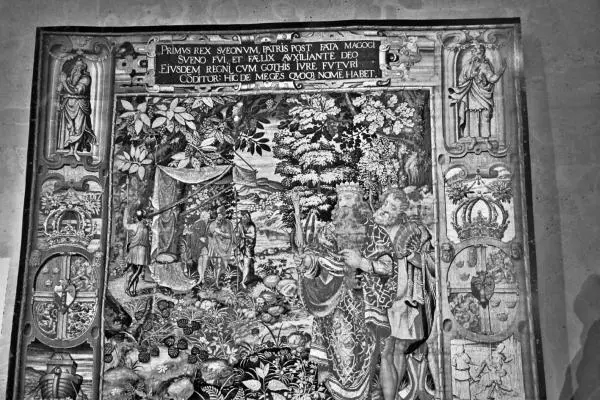 PRIMVS REX SVEONVM, PATRIS POST FATA MAGOGI
SVENO FVI, ET FÆLIX AVXILIANTE DEO
EIVSDEM REGNI CVM GOTHIS IVRE FVTVRI
CODITOR: HIC DE ME GES QVOQ NOMẼ HABET.